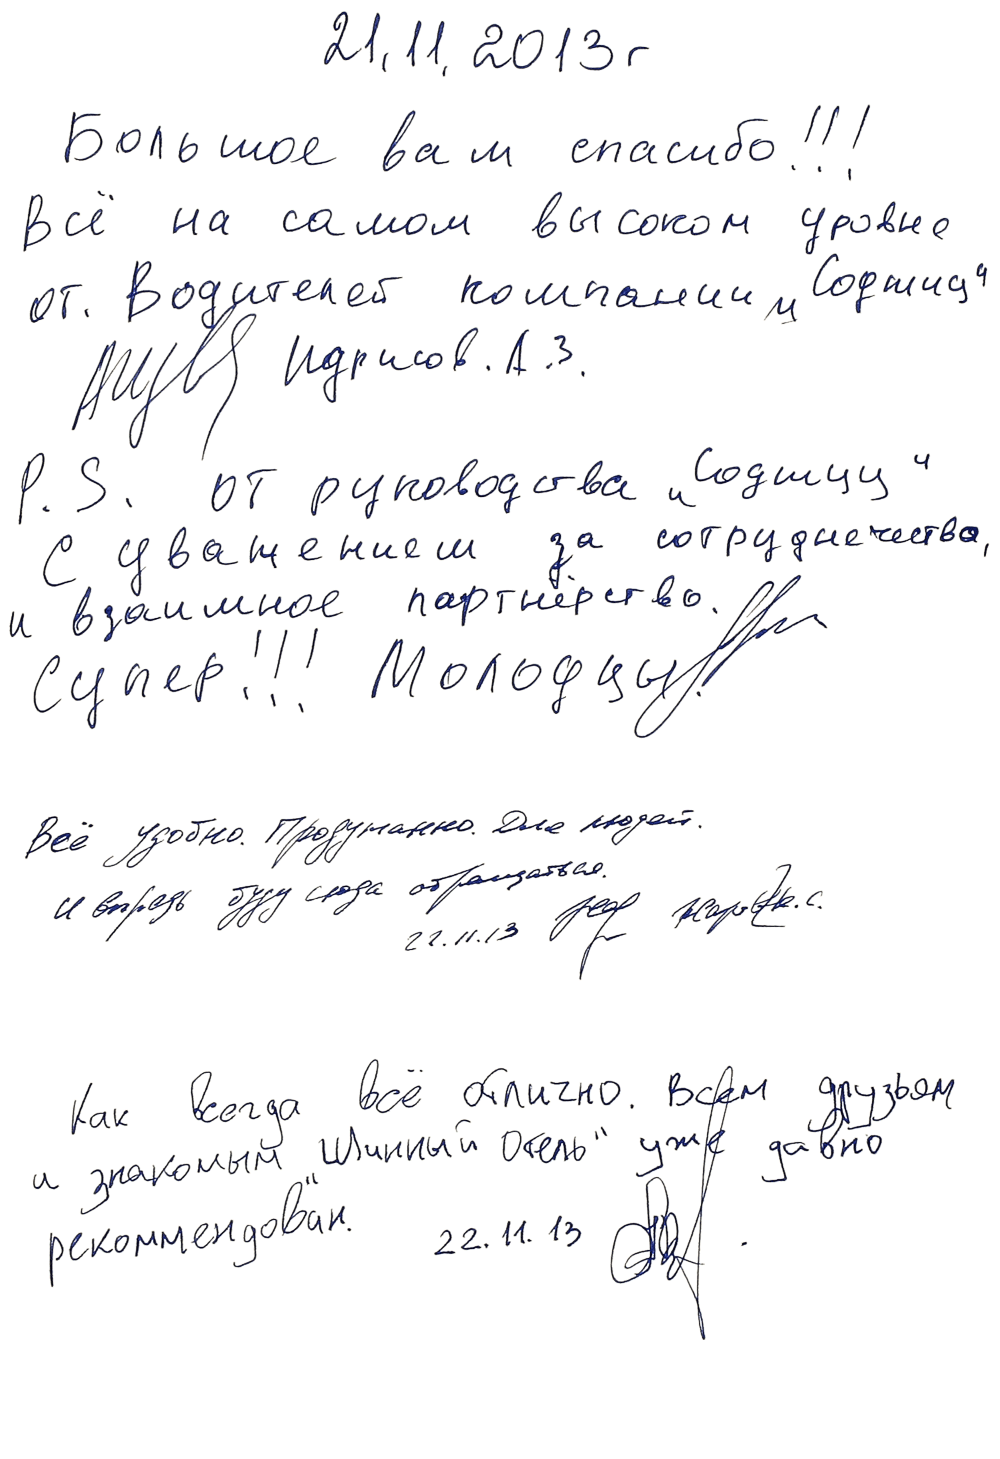 21.11.2013г
Большое вам спасибо!!!
Всё на самом высоком уровне
от. Водителей компании „Соджиц“
Идрисов. А.З.
P.S. от руководства „Соджиц“
С уважением за сотруднечество,
и взаимное партнёрство.
Супер!!! Молодцы!
Всё удобно. Продуманно. Для людей.
И впредь буду сюда обращаться.
22.11.13
Как всегда всё отлично. Всем друзьям
и знакомым "Шинный Отель" уже давно
рекоммендован.
22.11.13